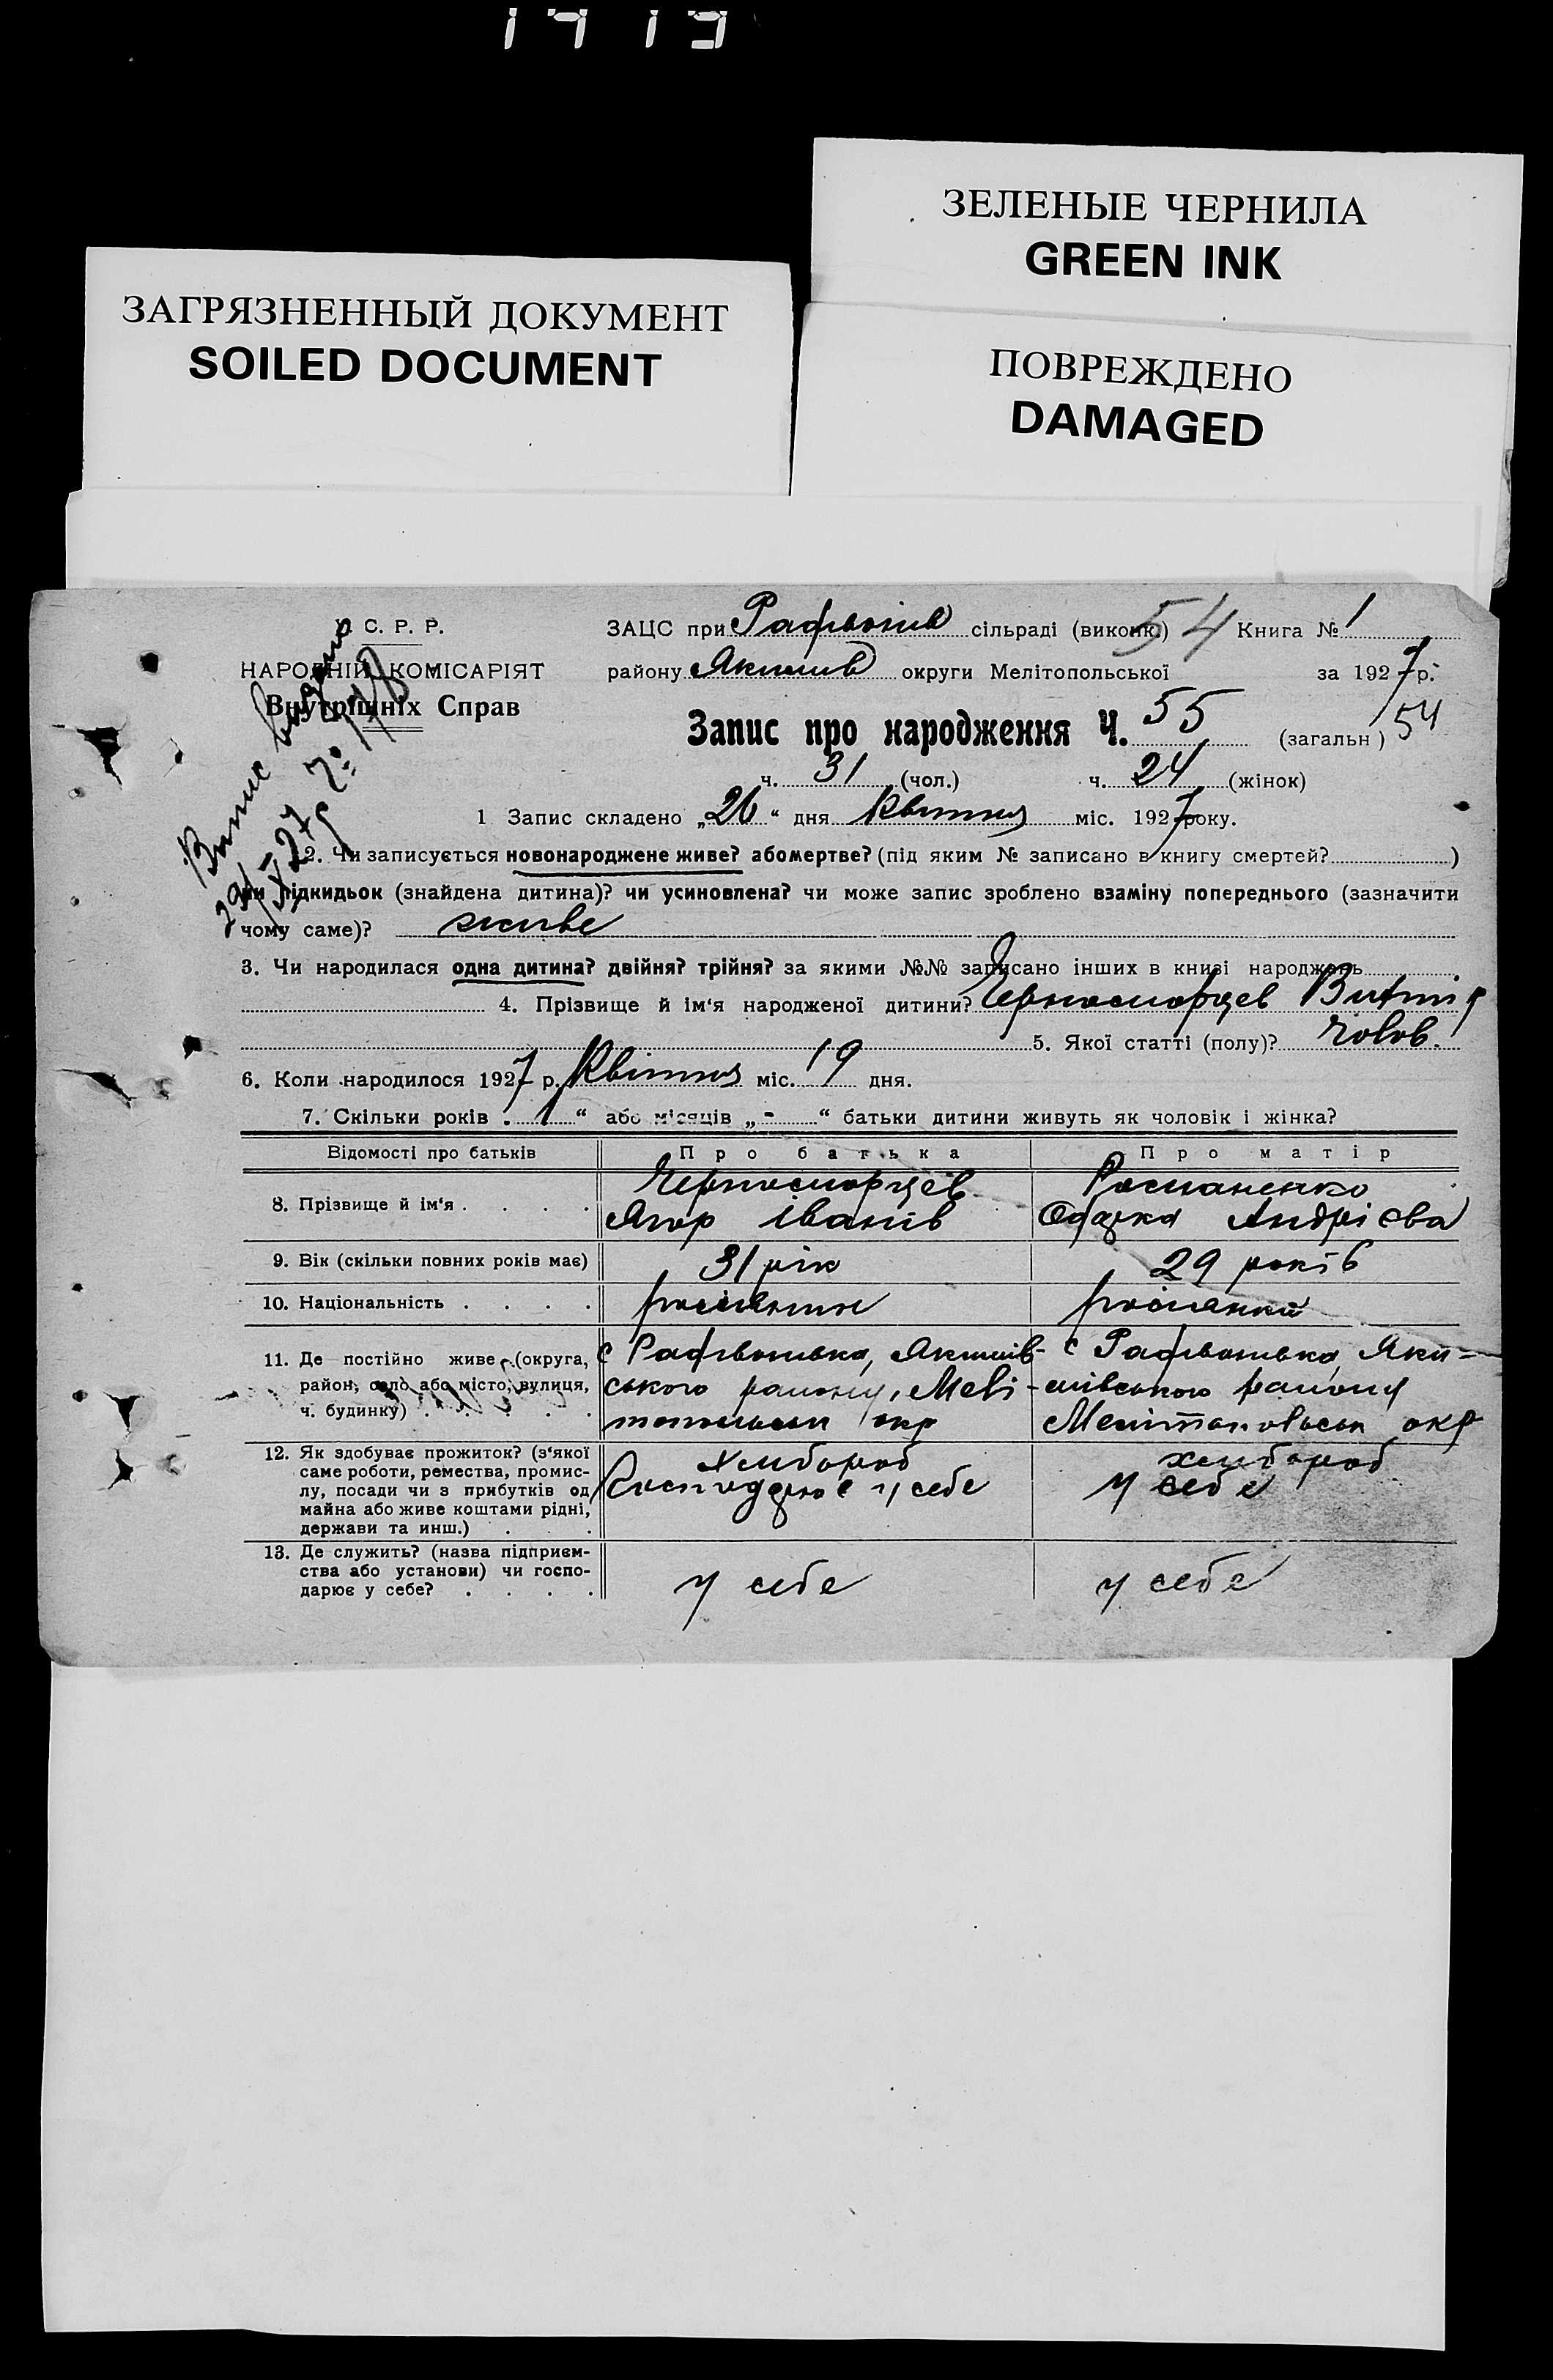 ЗЕЛЕНЫЕ ЧЕРНИЛА
GREEN INK
ЗАГРЯЗНЕННЫЙ ДОКУМЕНТ
SOILED DOCUMENT
ПОВРЕЖДЕНО
DAMAGED
С. Р. Р.
НАРОДНІЙ КОМІСАРІЯТ
Внутрішніх Справ
Витис видано
ЗАЦС при Рафвонив сільраді (виконк.) 54 Книга № 1
району Якимив округи Мелітопольської за 1927 р.
Запис про народження Ч. 55 (загальн) 54
ч. 31 (чол.) ч. 24 (жінок)
1 Запис складено „26“ дня Квитня міс. 1927 року.
2. Чи записується новонароджене живе? або мертве? (під яким № записано в книгу смертей? )
чи підкидьок (знайдена дитина)? чи усиновлена? чи може запис зроблено взаміну попереднього (зазначити
чому саме)? живе
3. Чи народилася одна дитина? двійня? трійня? за якими №№ записано інших в книзі народжень
4. Прізвище й ім‘я народженої дитини? Черноморцев
5. Якої статті (полу)? чолов.
6. Коли народилося 1927 р. Квітня міс. 19 дня.
7. Скільки років „1“ або місяців „-“ батьки дитини живуть як чоловік і жінка?
Відомості про батьків Про батька Про матір
8. Прізвище й ім‘я . . . . Черноморцев Романенко
Ягор Іванів Одарка Андрієва
9. Вік (скільки повних років має) 31 рік 29 років
10. Національність . . . . росіянин росіянка
11. Де постійно живе (округа, с Рафвонивка, Якимів- с Рафвонивка, Яки=
район, село або місто, вулиця, ського району, Мелі- мівського району
ч. будинку) . . . . . топольськ окр Мелітопольськ окр
12. Як здобуває прожиток? (з‘якої хлибороб хлибороб
саме роботи, ремества, промис-
лу, посади чи з прибутків од Господарює у себе у себе
майна або живе коштами рідні,
держави та инш.) . . .
13. Де служить? (назва підприєм-
ства або установи) чи госпо- у себе у себе
дарює у себе? . . . .